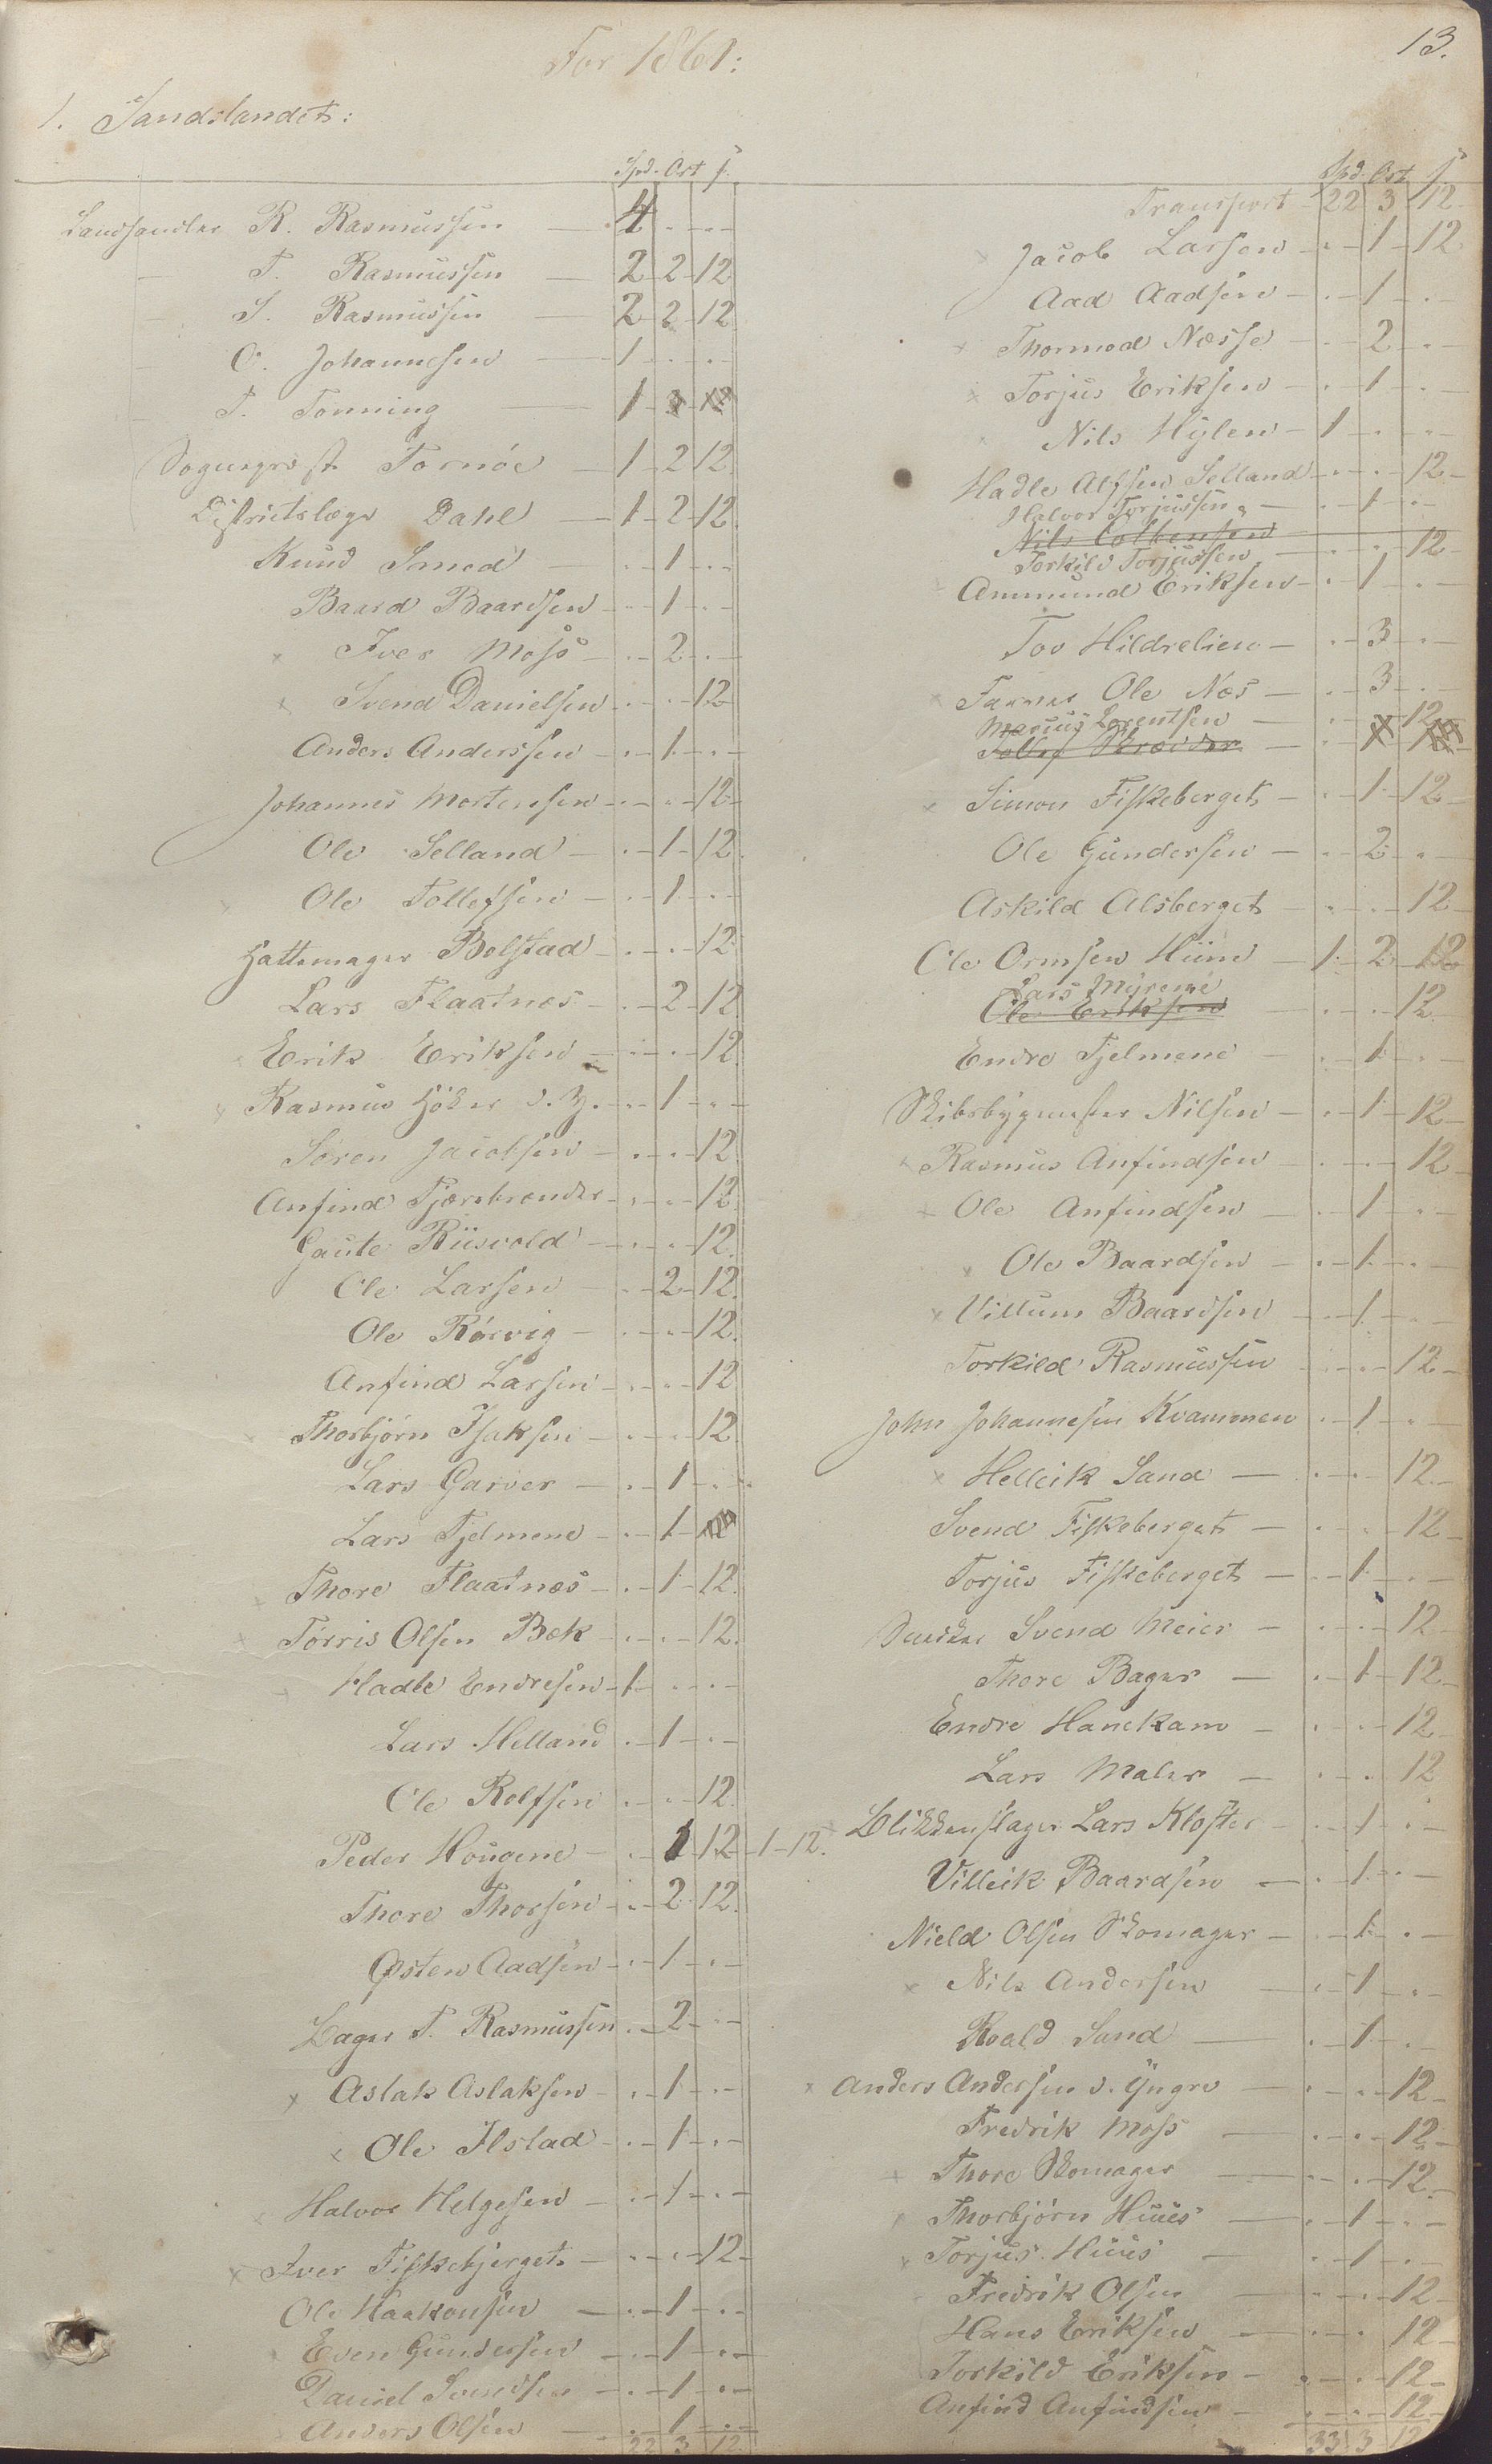 13.
For 1861:
1. Sandslandet:
Spd. Ort ß.
Landhandler R. Rasmussen — 4 . . .
— T. Rasmussen — 2 - 2 - 12
— S. Rasmussen — 2 - 2 - 12
— O. Johannesen — 1 . . .
— T. Tonning — 1
Sogneprest Tornöe — 1 - 2 12
Districtslæge Dahl — 1 - 2 - 12
Knud Smed — . - 1 - . .
Baard Baardsen - . - 1 - . -
x Iver Moss - . - 2 - . -
x Svend Danielsen - . - . - 12
Anders Anderssen - . - 1 - . -
Johannes Mortensen - . - . - 12
Ole Selland - . - 1 - 12
Ole Tollefsen - . - 1 - . -
Hattemager Bolstad - . - . - 12
Lars Flaatnes - . - 2 - 12
Erik Eriksen - . - . - 12
x Rasmus Höker - . - 1 - . -
Sören Jacobsen - . - . - 12
Anfind Tjærebrænder - . - . - 12
Gaute Riisvold - . - . - 12
Ole Larsen - . - 2 - 12
Ole Rörvig - . - . - 12
Anfind Larsen - . - . - 12
x Thorbjörn Isaksen - . - . - 12
Lars Garver - . - 1 - . .
Lars Tjelmene - . - 1
x Thore Flaatnes - . - 1 - 12
x Torris Olsen Bek - . - . - 12
x Hadle Endresen - 1 - . - . -
Lars Helland . - 1 - . -
Ole Rolfsen . - . - 12
Peder Hougene - . - 1 12 - 1 - 12.
Thore Thorsen - . - 2 - 12
Østen Aadsen - . - 1 - . -
Bager T. Rasmussen . - 2 - . -
x Aslak Aslaksen - . - 1 - . -
x Ole Ilstad - . - 1 - . -
x Halvor Helgesen - . - 1 - . -
x Iver Fiskebjerget - . - . - 12
Ole Haakonsen - . - 1 - . -
Even Gundersen - . - 1 - . -
Daniel Svendsen - . - 1 - . -
Anders Olsen - . - 1 - . -
22 3 12
Spd. Ort ß
Transport - 22 3 12
x Jacob Larsen - . - 1 - 12
Aad Aadsen - . - 1 - . -
x Thormod Næsse - . - 2 - . -
x Torjus Eriksen - . - 1 - . -
x Nils Hylen - 1 - . - . -
Hadle Alfsen Selland - . - . - 12
Halvor Torjussen - . - 1 - . -
Nils Colbensen
Torkild Torjussen - . - . 12
Ammund Eriksen - . - 1 - . -
Tov Hildrelien - . - 3 - . -
x Farver Ole Nes - . - 3 - . -
Marius Lorentsen - . - . - 12
Tollef Skræder
x Simon Fiskeberget - . - 1 - 12
Ole Gundersen - . - 2 - . -
Askild Alsberget - . - . - 12
Ole Ormsen Hiim - 1 - 2 - 12
Lars Myrene
Ole Eriksen - . - . - 12
Endre Tjelmene - . - 1 - . -
Skibsbygmester Nilsen - . - 1 - 12
x Rasmus Anfindsen - . - . - 12
x Ole Anfindsen - . - 1 - . -
x Ole Baardsen - . - 1 - . -
x Villum Baardsen - . - 1 - . -
Torkild Rasmussen - . - . - 12
John Johannesen Kvammen . - 1 - . -
x Helleik Sand - . - . - 12
Svend Fiskeberget - . - . 12
Torjus Fiskeberget - . - 1 - . -
Snedker Svend Meier - . - . - 12
Thore Bager - . - 1 - 12
Endre Hanekam - . - . - 12
Lars Maler - . - . 12
Blikkenslager Lars Kloster - . - 1 - . -
Villeik Baardsen - . - 1 - . -
Nield Olsen Skomager - . - 1 - . -
x Nils Andersen - . - 1 - . -
Roald Sand - . - 1 - . -
x Anders Andersen d. Yngre - . - . - 12
Fredrik Moss - . - . - 12
x Thore Skomager - . - . - 12
x Thorbjörn Huus - . - 1 - . -
x Torjus Huus - . - 1 - . -
Fredrik Olsen - . - . - 12
Hans Eriksen - . - . 12
Torkild Eriksen - . - . - 12
Anfind Anfindsen - . - . - 12
33 3 12